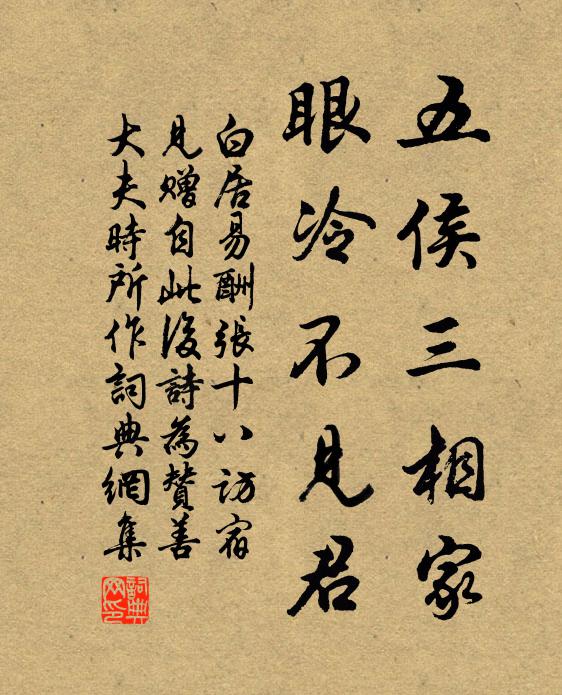 五侯三相家
眼冷不見君
白居易酬張十八訪宿
見贈自此後詩為贊善
大夫時所作詞典網集
詞典
网印